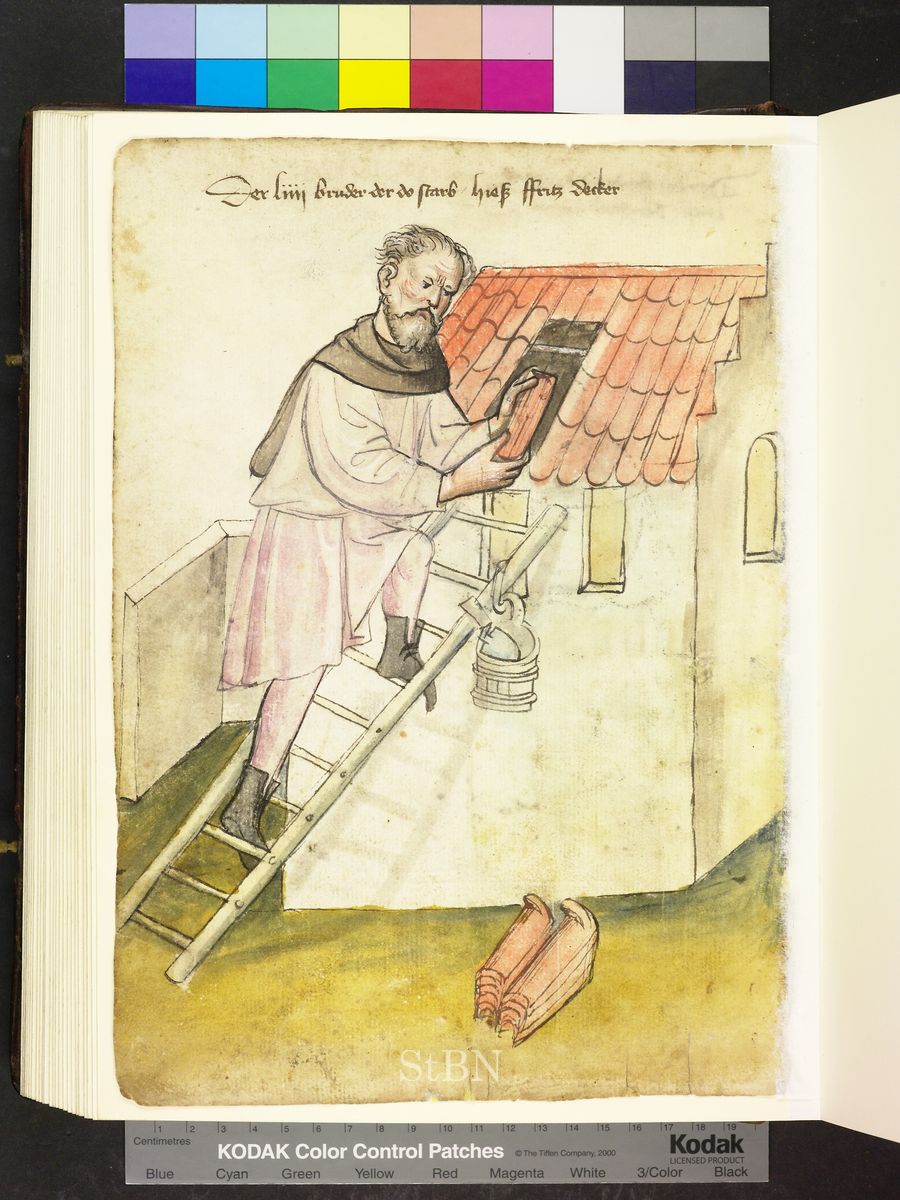 Der liiij bruder der do starb hieß ffritz decker
StBN
1 2 3 4 5 6 7 8 9 10 11 12 13 14 15 16 17 18 19
Centimetres
KODAK Color Control Patches © The Tiffen Company, 2000 Kodak
LICENSED PRODUCT
Blue Cyan Green Yellow Red Magenta White 3/Color Black